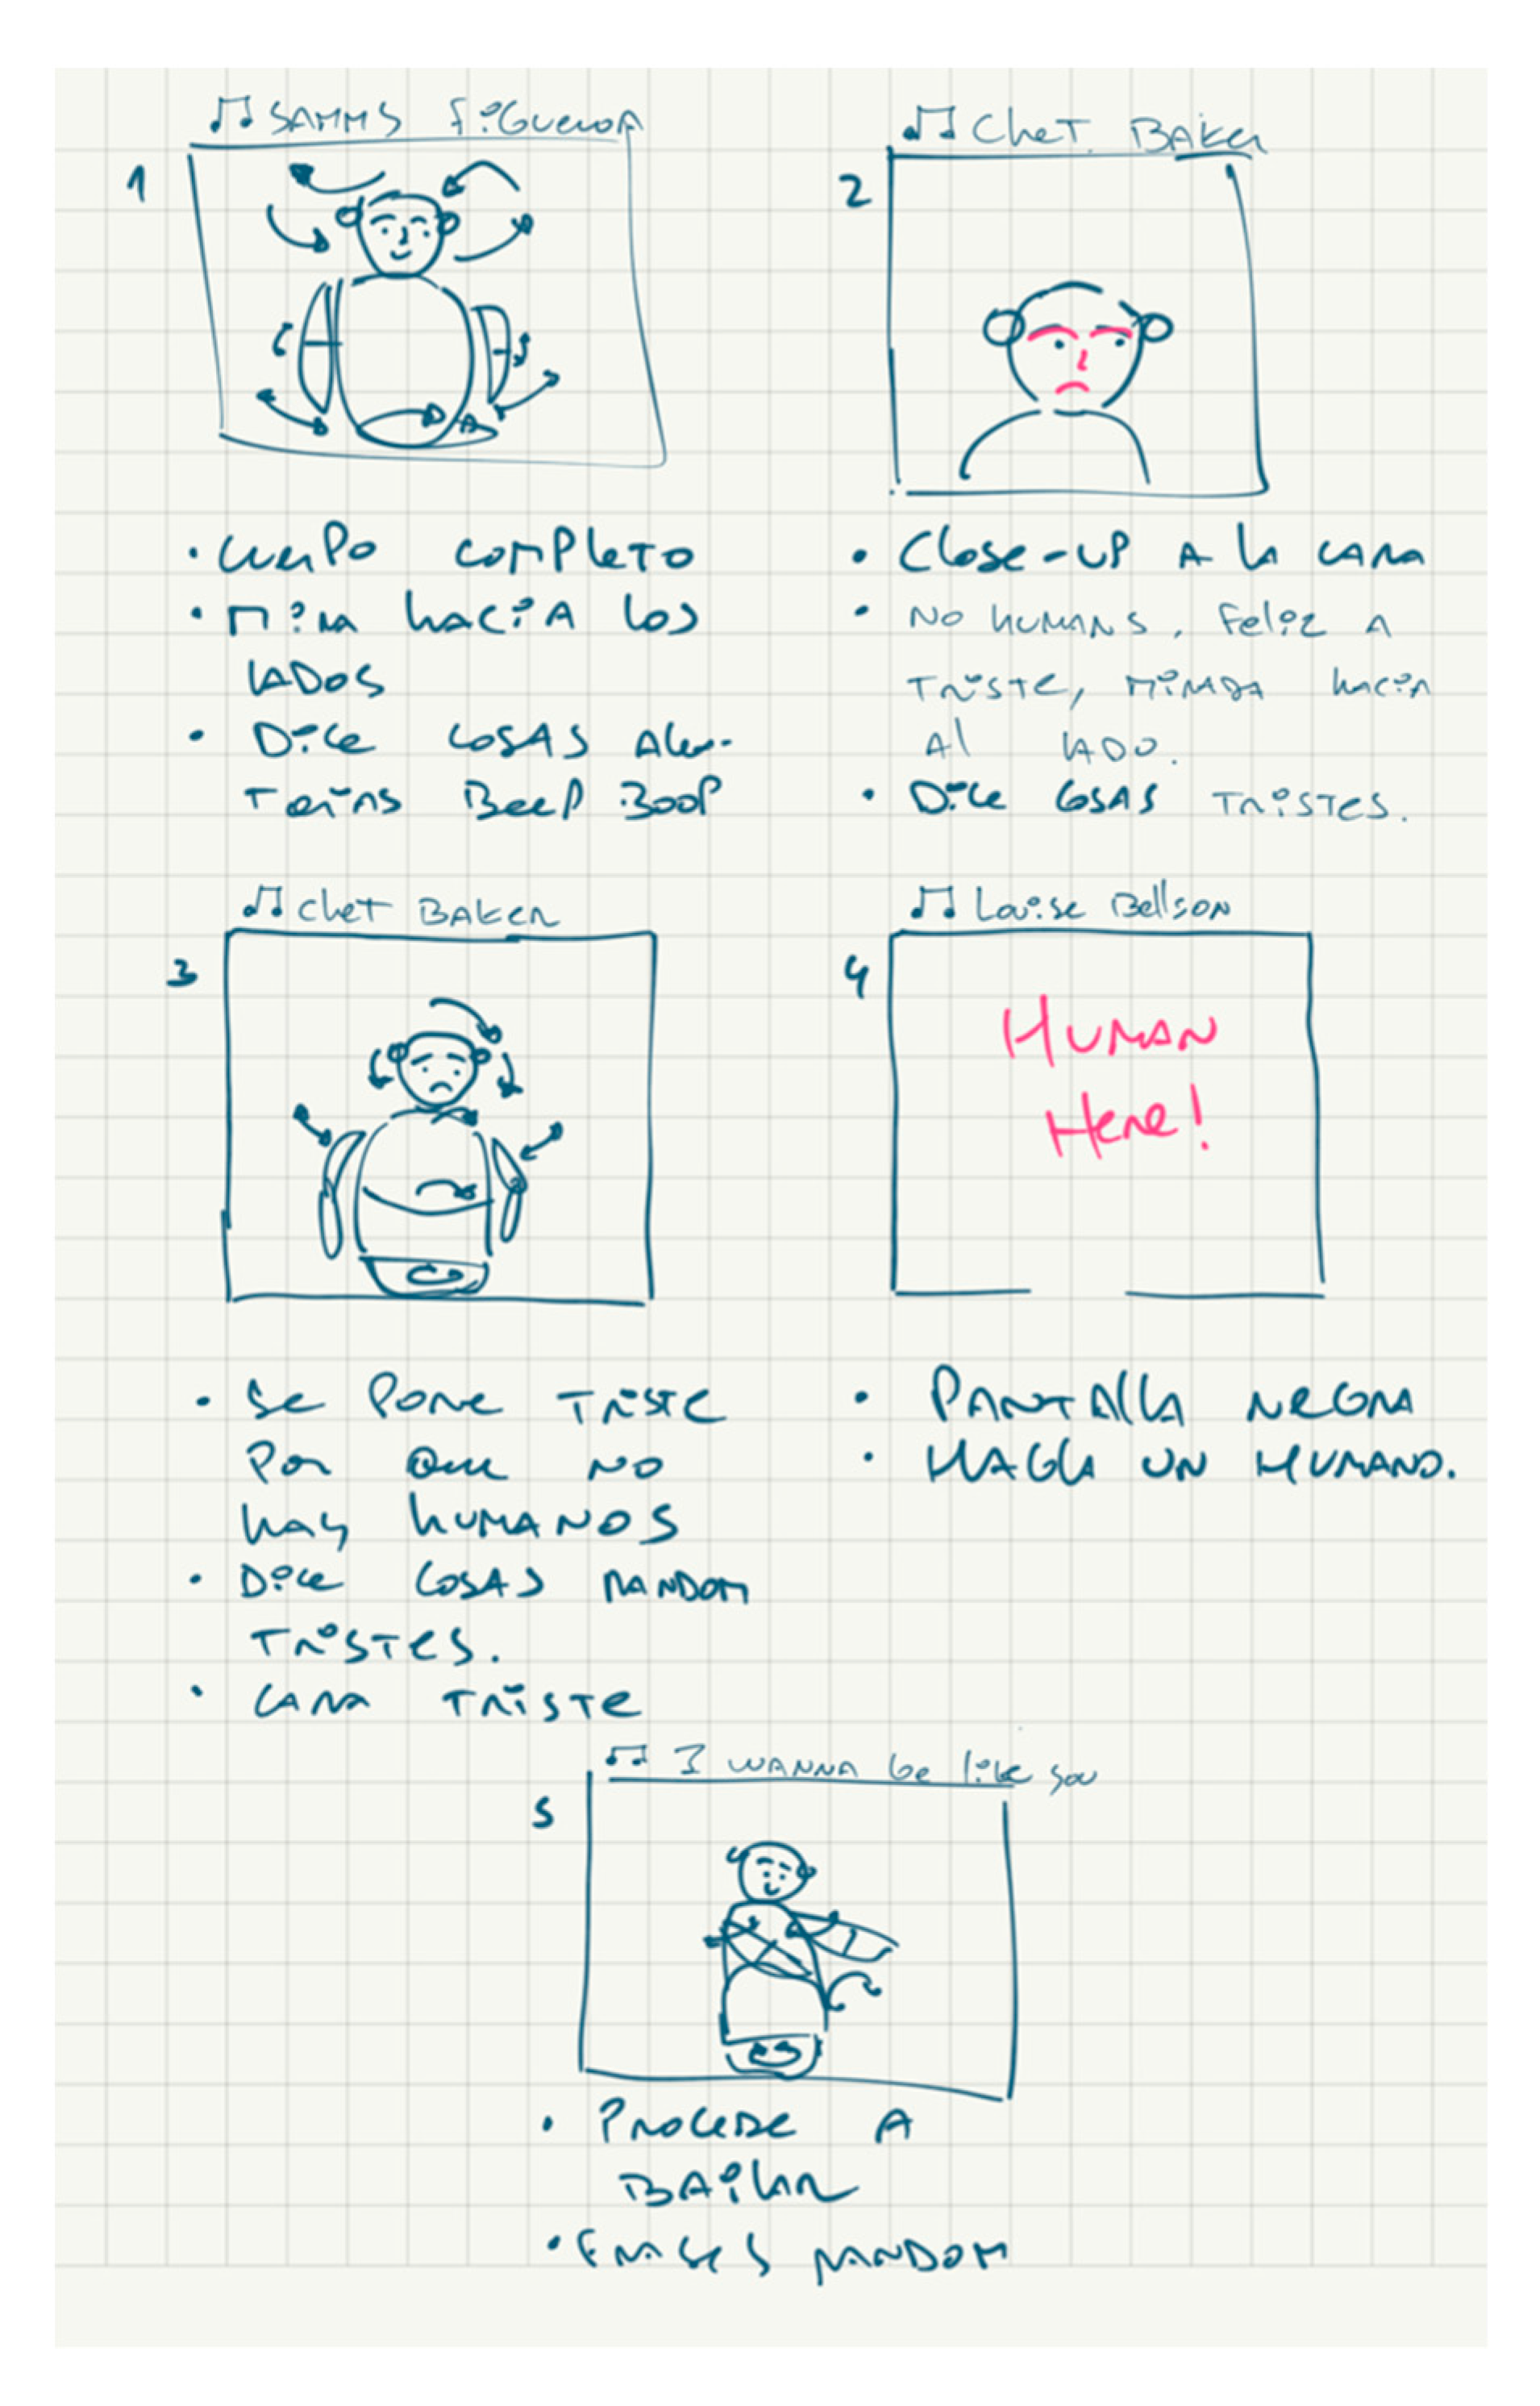 ♫ SAMMS FiGueroA
1
• Cuerpo completo
• Mira hacia los
lados
• Dice cosas alea-
torias Beep Boop
♫ Chet Baker
2
• Close-up a la cara
• No humans, feliz a
triste, mirada hacia
al lado.
• Dice cosas tristes.
♫ Chet Baker
3
• Se pone triste
por que no
hay humanos
• Dice cosas random
tristes.
• Cara triste
♫ Louise Bellson
4
Human
Here!
• Pantalla negra
• un humano.
♫ I wanna be like you
5
• Procede a
bailar
• random